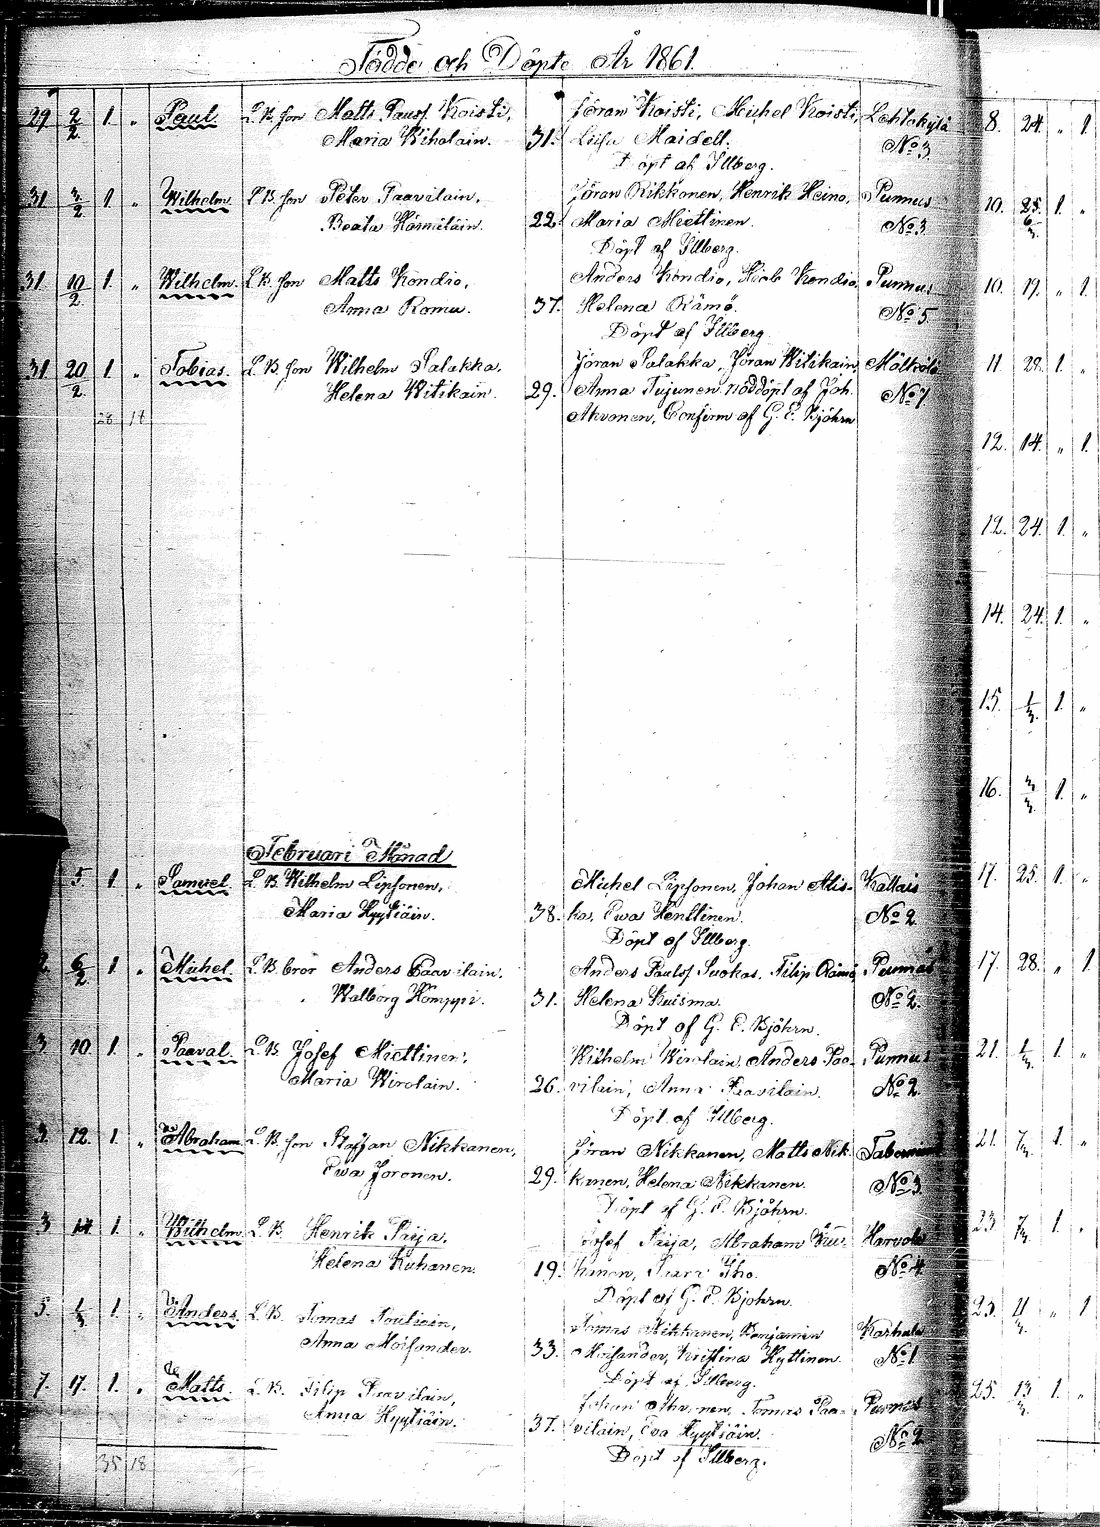 Födde och Döpte År 1861.
29 2/2 1. " Paul. L. B. son Matts Paulss. Koisti, Jöran Koisti, Michel Koisti, Lehtokylä
Maria Wiholain. 31. Lisa Maidell. No 3.
Döpt af Illberg.
31 3/2 1. " Wilhelm L. B. son Peter Paavilain, Jöran Rikkonen, Henrik Heino, Punnus
Beata Hämäläin. 22. Maria Miettinen. No 3
Döpt af Illberg.
31. 10/2 1. " Wilhelm. L. B. son Matts Kondio, Anders Kondio, Kondio, Punnus
Anna Romu. 37. Helena Rämö. No 5.
Döpt af Illberg
31 20/2 1. " Tobias. L. B. son Wilhelm Palakka, Jöran Palakka, Jöran Witikain,
Helena Witikain. 29. Anna Tujunen. nöddöpt af Joh. No 7
28 18 Akvonen, Confirm af G. E. Bjöhrn
Februari Månad
5. 1. " Samuel. L. B. Wilhelm Lipsonen, Michel Lipsonen, Johan Atis- Kallais
Maria Hyytiäin. 38. ka, Ewa Henttinen. No 2.
Döpt af Illberg.
2. 6/2 1. " Michel. L. B. bror Anders Paavilain. Anders Paulss Suokas, Filip Rämö, Punnus
Walborg Römppi. 31. Helena Kuisma. No 2.
Döpt af G. E. Bjöhrn.
3 10 1. " Paaval. L. B. Josef Miettinen, Wilhelm Wirolain, Anders Paa- Punnus
Maria Wirolain. 26. vilain, Anna Paavilain. No 2.
Döpt af Illberg.
3. 12. 1. " Abraham L. B. son Staffan Nikkanen, Jöran Nikkanen, Matts Nik-
Ewa Joronen. 29. kanen, Helena Nikkanen. No 3.
Döpt af G. E. Bjöhrn.
3 14 1. " Wilhelm. L. B. Henrik Paija, Josef Paija, Abraham
Helena Kuhanen. 19. No 4
Döpt af G. E. Bjöhrn.
5. 1/3 1. " Anders. L. B. Tomas Poutiain, Tomas Nikkanen, Benjamin Karhula
Anna Moisander. 33. Moisander, Kristina Hyttinen. No 1
Döpt af Illberg.
7. 17. 1. " Matts. L. B. Filip Paavilain, Johan Tomas Paa- Punnus
Anna Hyytiäin. 37. vilain, Eva Hyytiäin. No 2
Döpt af Illberg.
35 18
8. 24. " 1.
10. 25. 1. "
10. 19. " 1.
11. 28. 1. "
12. 14. " 1.
12. 24. 1. "
14. 24. 1. "
15. 1/3 1. "
16. 3/3 1. "
17. 25. 1. "
17. 28. " 1
21. 1/3 1. "
21. 7/3 1. "
23 7/3 1. "
23. 11/3 " 1
25. 13/3 1. "